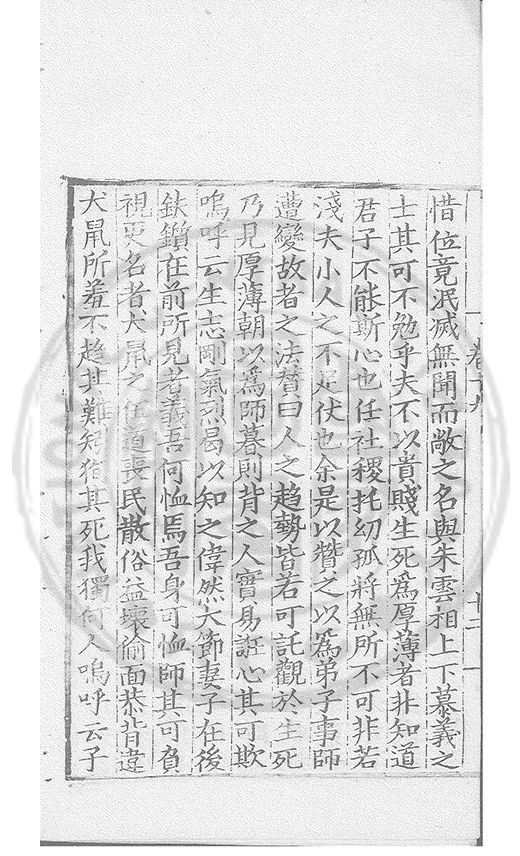 惜位竟泯滅無聞而敞之名與朱雲相上下慕義之
士其可不勉乎夫不以貴賤生死爲厚薄者非知道
君子不能斯心也任社稷托幼孤將無所不可非若
淺夫小人之不足仗也余是以贊之以爲弟子事師
遭變故者之法贊曰人之趨勢皆若可託觀於生死
乃見厚薄朝以爲師暮則背之人實易誑心其可欺
嗚呼云生志剛氣烈曷以知之偉然大節妻子在後
鈇鑕在前所見者義吾何恤焉吾身可恤師其可負
視更名者犬鼠之伍道喪民散俗益壞偷面恭背違
犬鼠所羞不趍難知猶其死我獨何人嗚呼云子